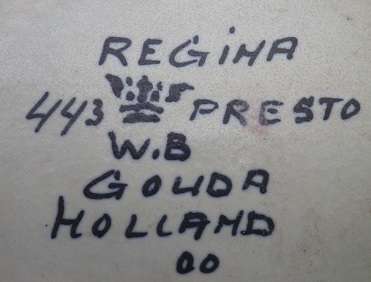 REGINA
443 PRESTO
W.B
GOUDA
HOLLAND
00